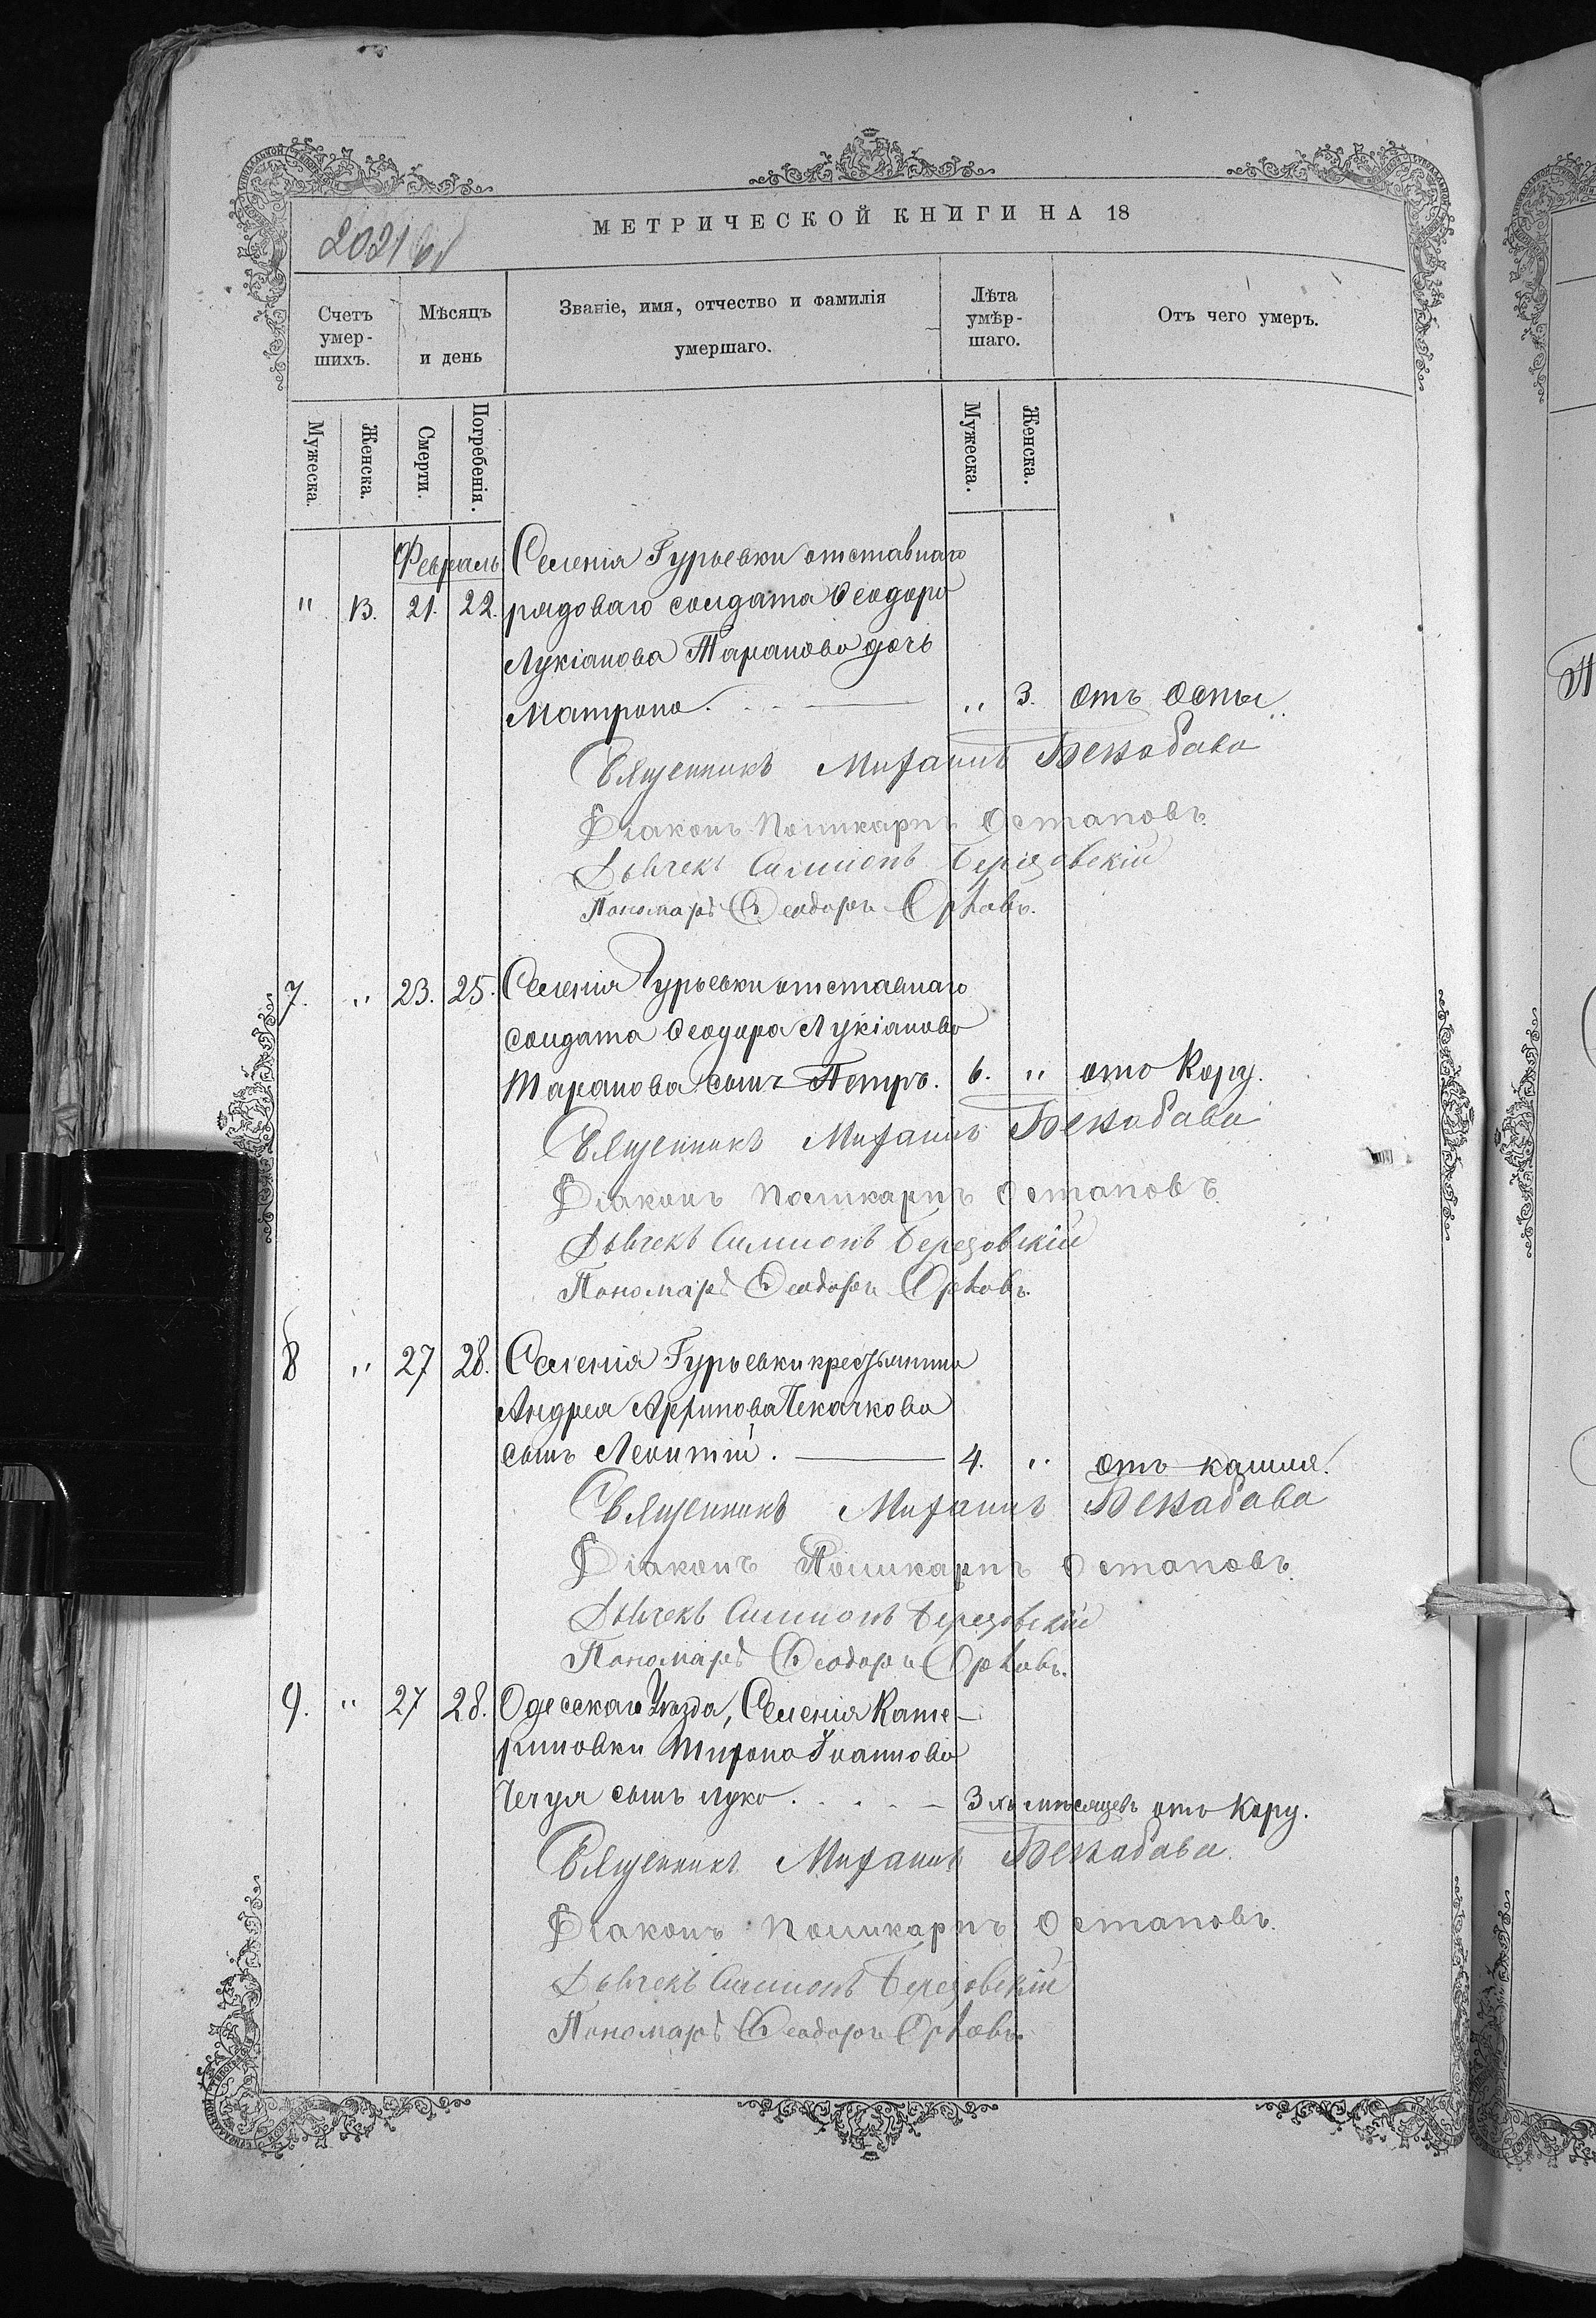 МЕТРИЧЕСКОЙ КНИГИ НА 18
2021 об
Счетъ умершихъ.
Мѣсяцъ и день
Званіе, имя, отчество и фамилія умершаго.
Лѣта умѣршаго.
Отъ чего умеръ.
Мужеска.
Женска.
Смерти.
Погребенія.
Мужеска.
Женска.
Февраль Селенія Гурьевки отставнаго
" 13. 21. 22. рядоваго солдата Ѳеодора
Лукіанова Таранова дочь
Матрона. " 3. отъ Оспы.
Священникъ Михаилъ
Діаконъ Поликарпъ Остаповъ.
Дьячекъ Симеонъ Березовскій
Пономарь Ѳеодоръ Орловъ.
7. " 23. 25. Селенія Гурьевки отставнаго
солдата Ѳеодора Лукіанова
Таранова сынъ Петръ. 6. " отъ Кору.
Священникъ Михаилъ
Діаконъ Поликарпъ Остаповъ.
Дьячекъ Симеонъ Березовскій
Пономарь Ѳеодоръ Орловъ.
8 " 27 28. Селенія Гурьевки крестьянина
Андрея сынъ Леонтій. 4. " отъ кашля.
Священникъ Михаилъ
Діаконъ Поликарпъ Остаповъ.
Дьячекъ Симеонъ Березовскій
Пономарь Ѳеодоръ Орловъ.
9. " 27 28. Одесскаго Уѣзда, Селенія Кате-
риновки Мирона Іоаннова
сынъ Лука. 3хъ мѣсяцевъ отъ Кору.
Священникъ Михаилъ
Діаконъ Поликарпъ Остаповъ.
Дьячекъ Симеонъ Березовскій
Пономарь Ѳеодоръ Орловъ.